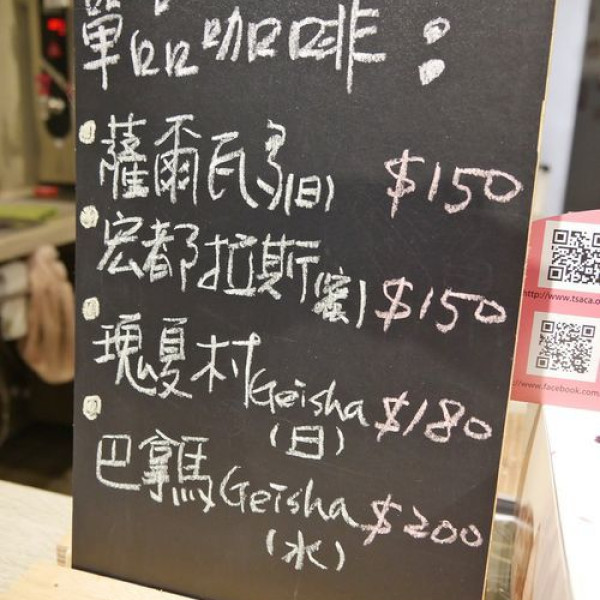 單品咖啡：
薩爾瓦多(日) $150
宏都拉斯(蜜) $150
瑰夏村Geisha $180
(日)
巴拿馬Geisha $200
(水)
http://www.tsaca.o
//www.facebook.com